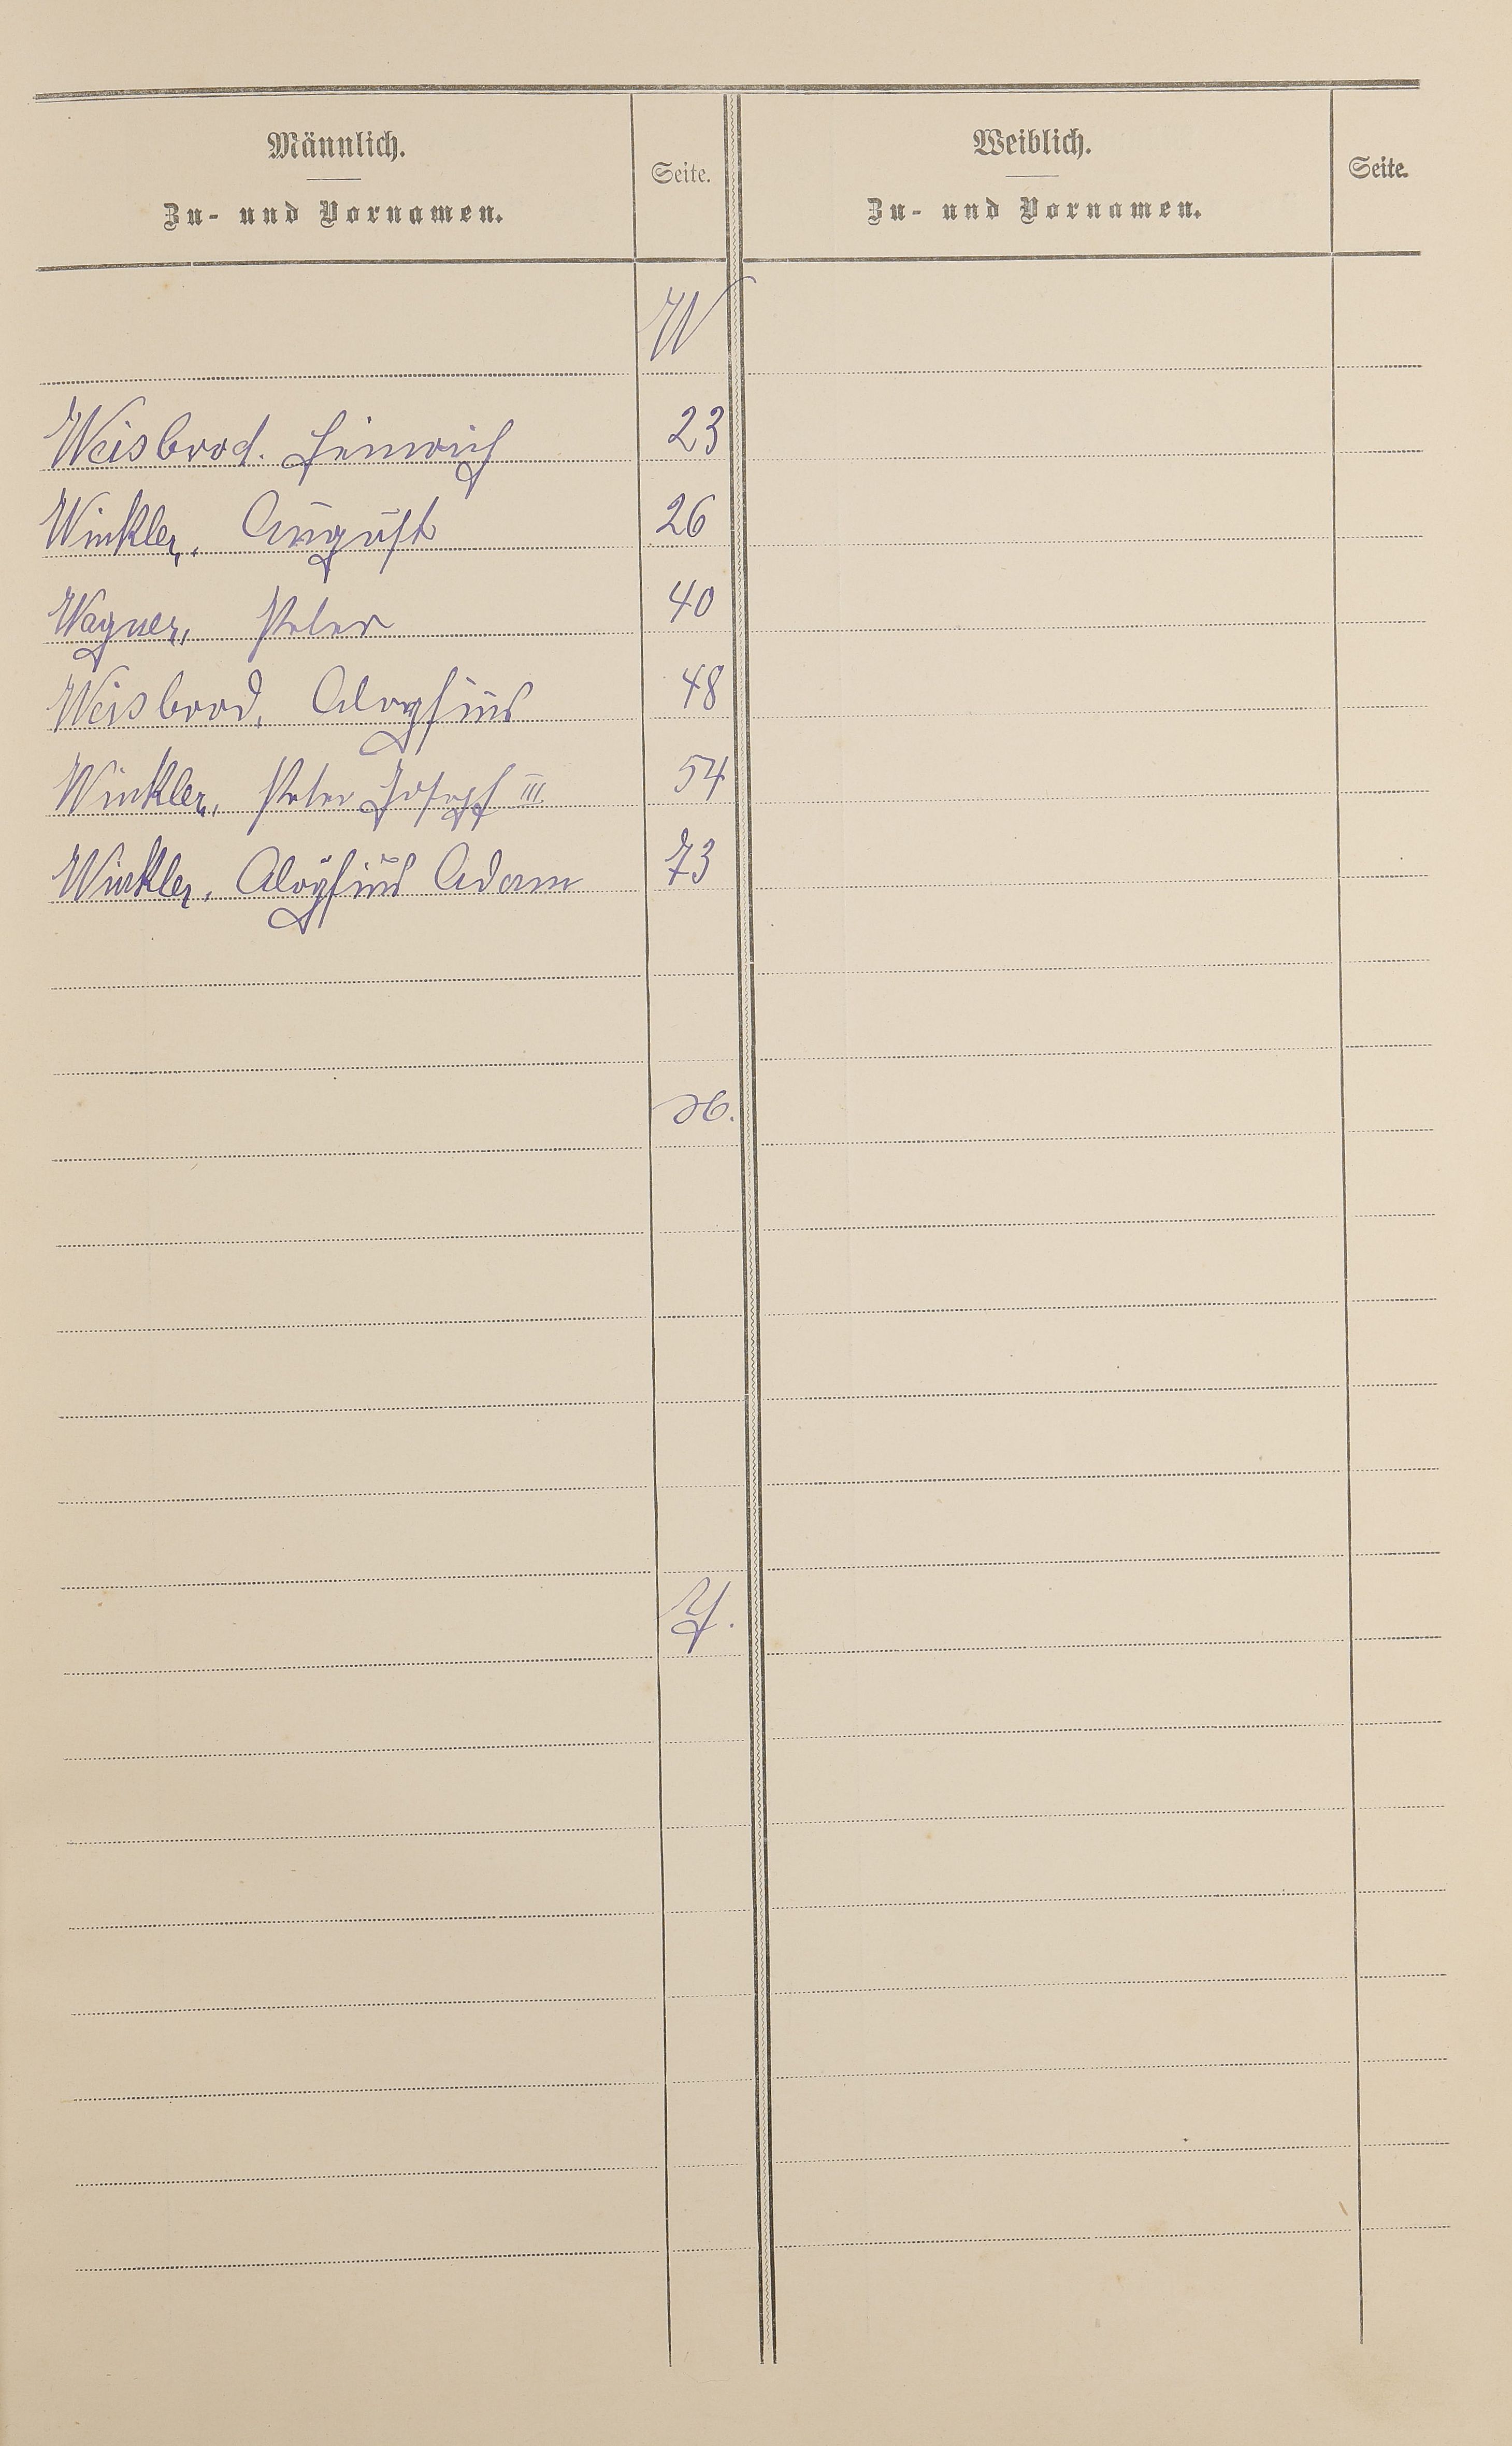 Männlich.
Zu- und Vornamen.
Seite.
Weiblich.
Zu- und Vornamen.
Seite.
W
Weisbrod. Heinrich 23
Winkler, August 26
Wagner, Peter 40
Weisbrod, Aloysius 48
Winkler, Peter Josef III. 54
Winkler, Aloysius Adam 73
X.
Y.